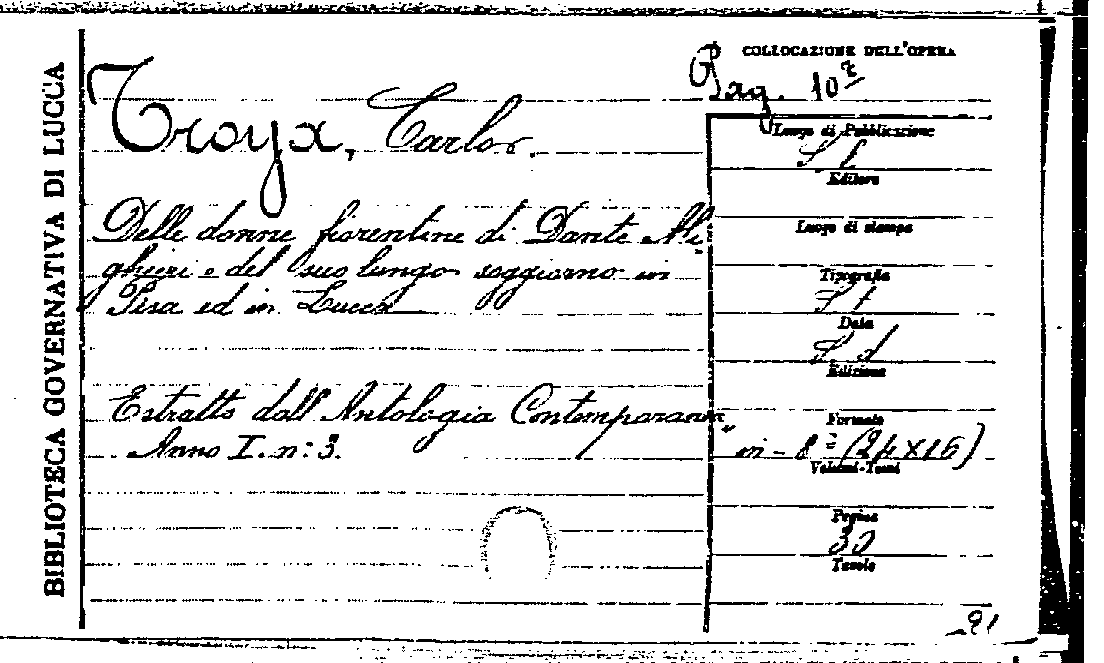 BIBLIOTECA GOVERNATIVA DI LUCCA
COLLOCAZIONE DELL'OPERA
Pag. 10
Troya, Carlo.
Delle donne fiorentine di Dante Ali-
ghieri e del suo lungo soggiorno in
Pisa ed in Lucca
Estratto dall'Antologia Contemporanea"
Anno I. n: 3.
Luogo di Pubblicazione
S l
Editore
Luogo di stampa
Tipografia
S t
Data
S. d
Edizione
Formato
in - 8º (24×16)
Volumi-Tomi
Pagine
30
Tavole